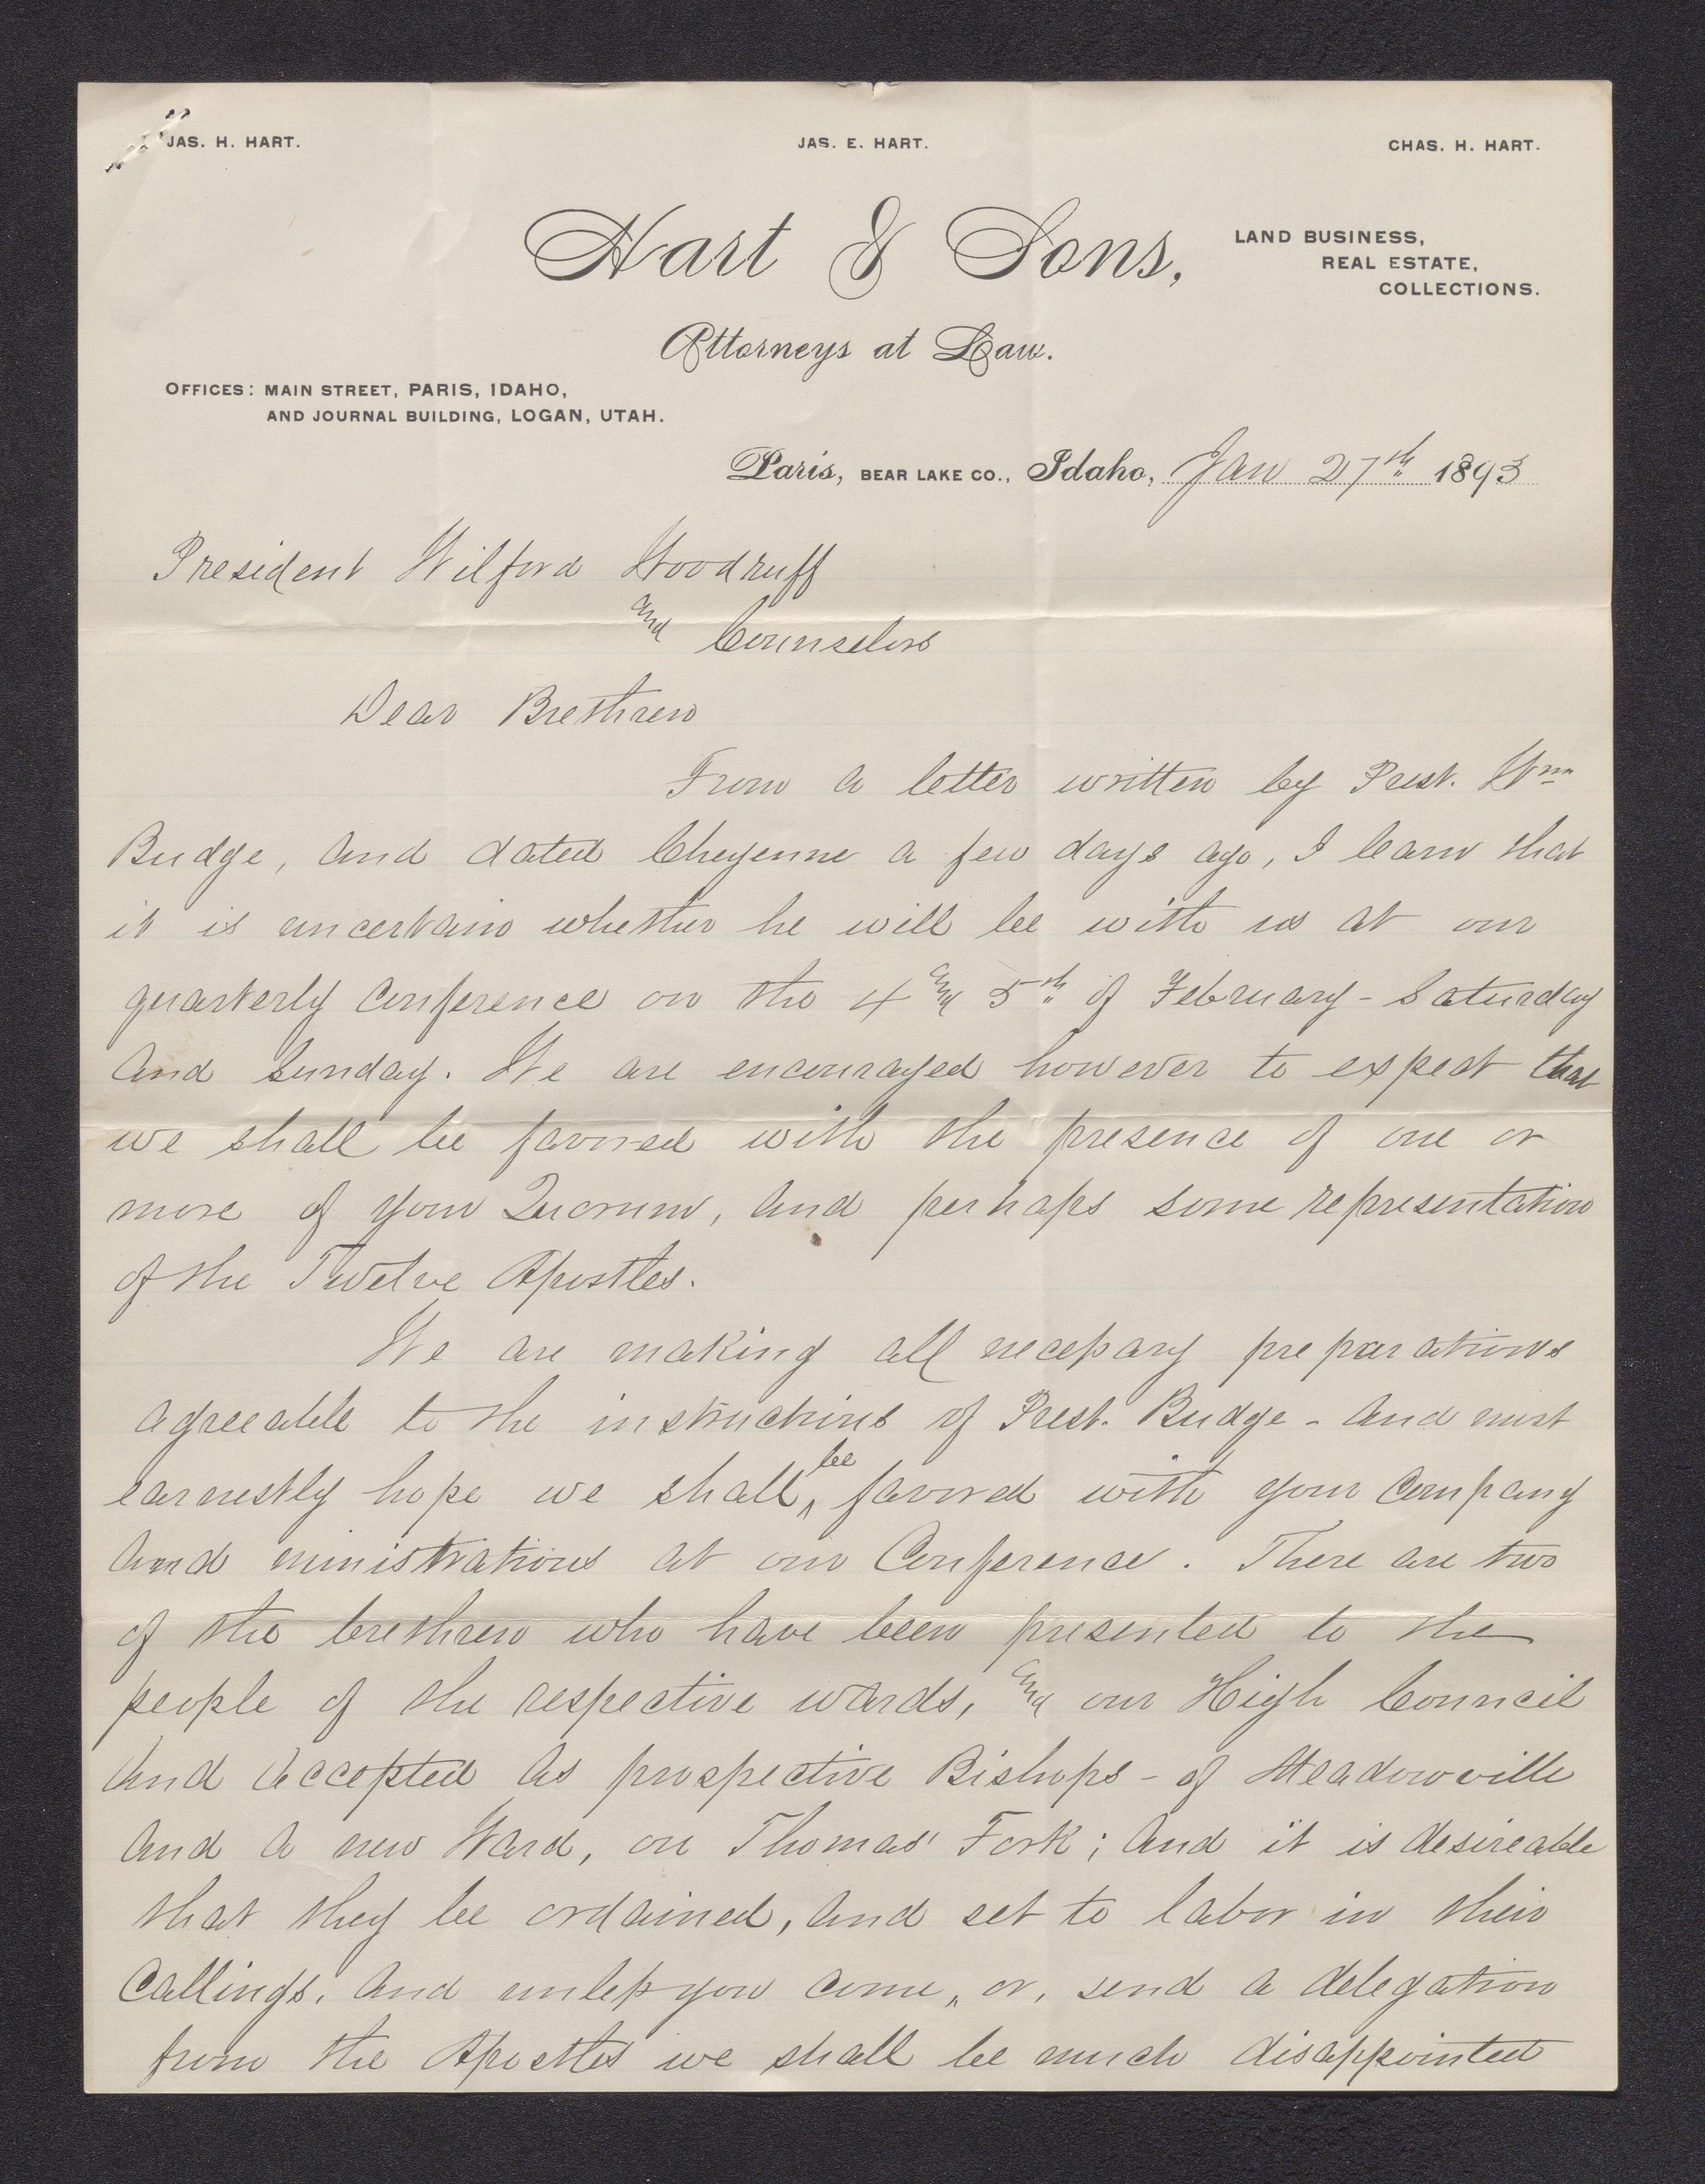 JAS. H. HART. JAS. E. HART. CHAS. H. HART.
Hart & Sons,
LAND BUSINESS,
REAL ESTATE,
COLLECTIONS.
Attorneys at Law.
OFFICES: MAIN STREET, PARIS, IDAHO,
AND JOURNAL BUILDING, LOGAN, UTAH.
Paris, BEAR LAKE CO., Idaho, Jan 27th 1893
President Wilford Woodruff
and Counselors
Dear Brethren
From a letter written by Prest. Wm
Budge, and dated Cheyenne a few days ago, I learn that
it is uncertain whether he will be with us at our
quarterly Conference on the 4 and 5th of February - Saturday
and Sunday. We are encouraged however to expect that
we shall be favored with the presence of one or
more of your Quorum, and perhaps some representation
of the Twelve Apostles.
We are making all necessary preparations
agreeable to the instructions of Prest. Budge - and most
earnestly hope we shall be favored with your Company
and ministrations at our Conference. There are two
of the brethren who have been presented to the
people of the respective wards, and our High Council
and accepted as prospective Bishops - of Meadowville
and a new Ward, on Thomas' Fork; and it is desireable
that they be ordained, and set to labor in their
Callings. And unless you come, or, send a delegation
from the Apostles we shall be much disappointed